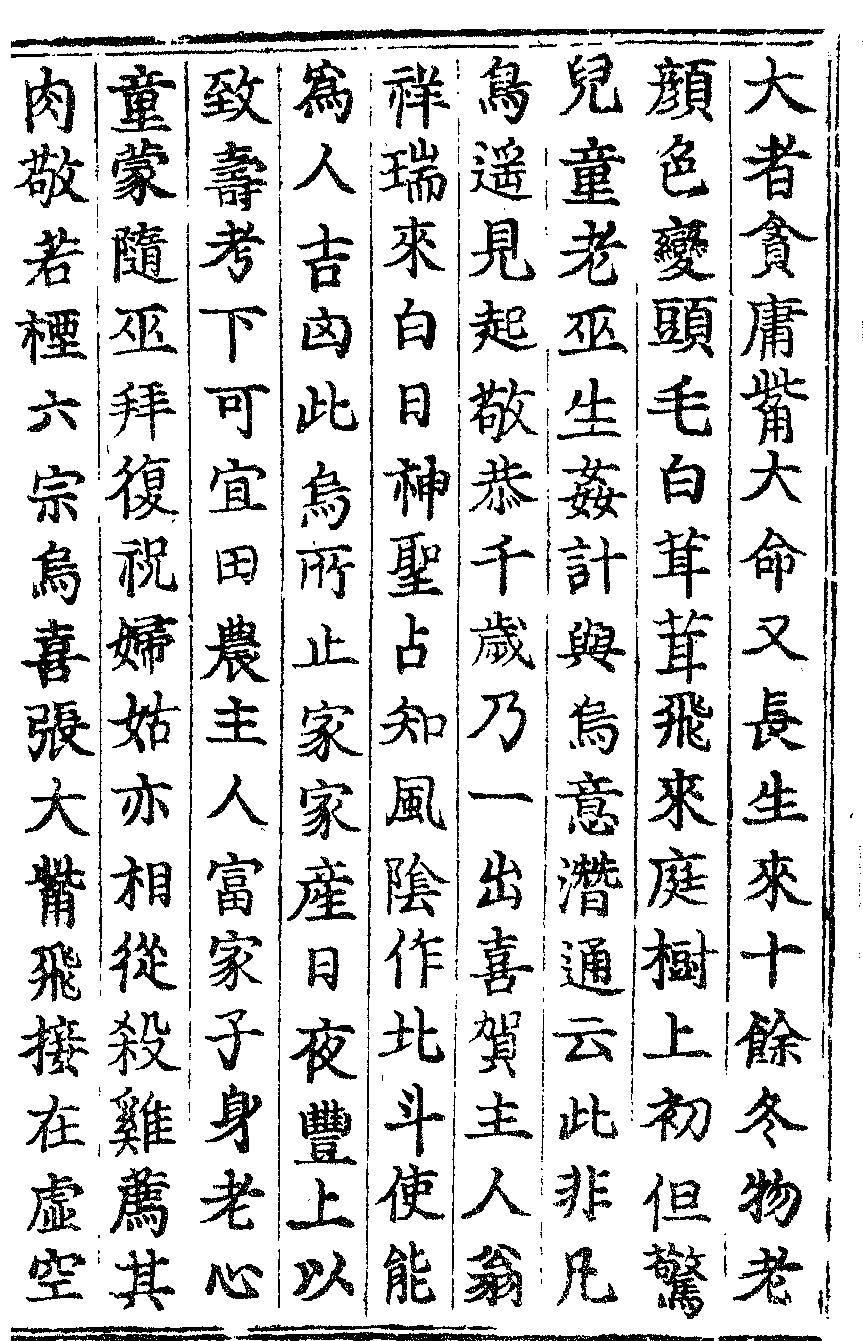 大者貪庸觜大命又長生來十餘冬物老
顔色變頭毛白茸茸飛來庭樹上初但驚
兒童老巫生姦計與烏意潛通云此非凡
鳥遥見起敬恭千歲乃一出喜賀主人翁
祥瑞來白日神聖占知風隂作北斗使能
為人吉凶此烏所止家家産日夜豐上以
致壽考下可宜田農主人富家子身老心
童蒙隨巫拜復祝婦姑亦相從殺雞薦其
肉敬若禋六宗烏喜張大觜飛接在虛空